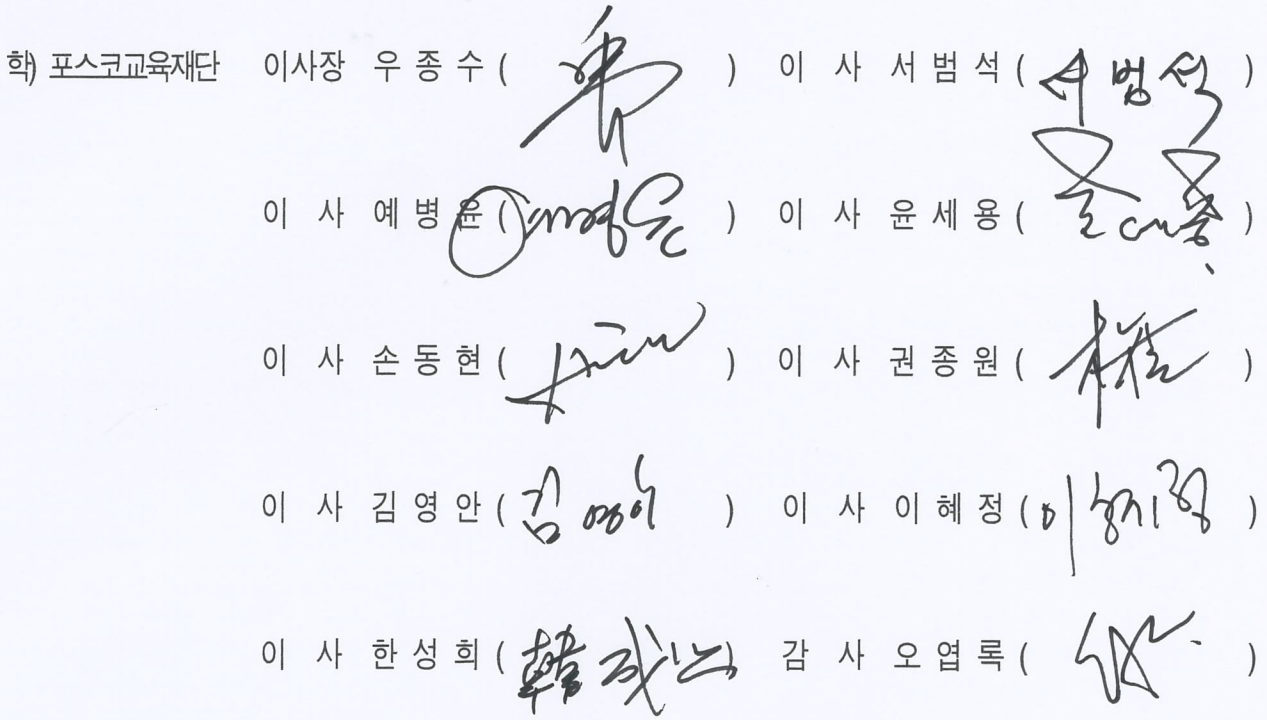 학) 포스코교육재단 이사장 우종수 ( ) 이 사 서범석 ( 서범석 )
이 사 예병윤 ( ) 이 사 윤세용 ( )
이 사 손동현 ( ) 이 사 권종원 ( )
이 사 김영안 ( 김영안 ) 이 사 이혜정 ( 이혜정 )
이 사 한성희 ( 韓 ) 감 사 오엽록 ( )